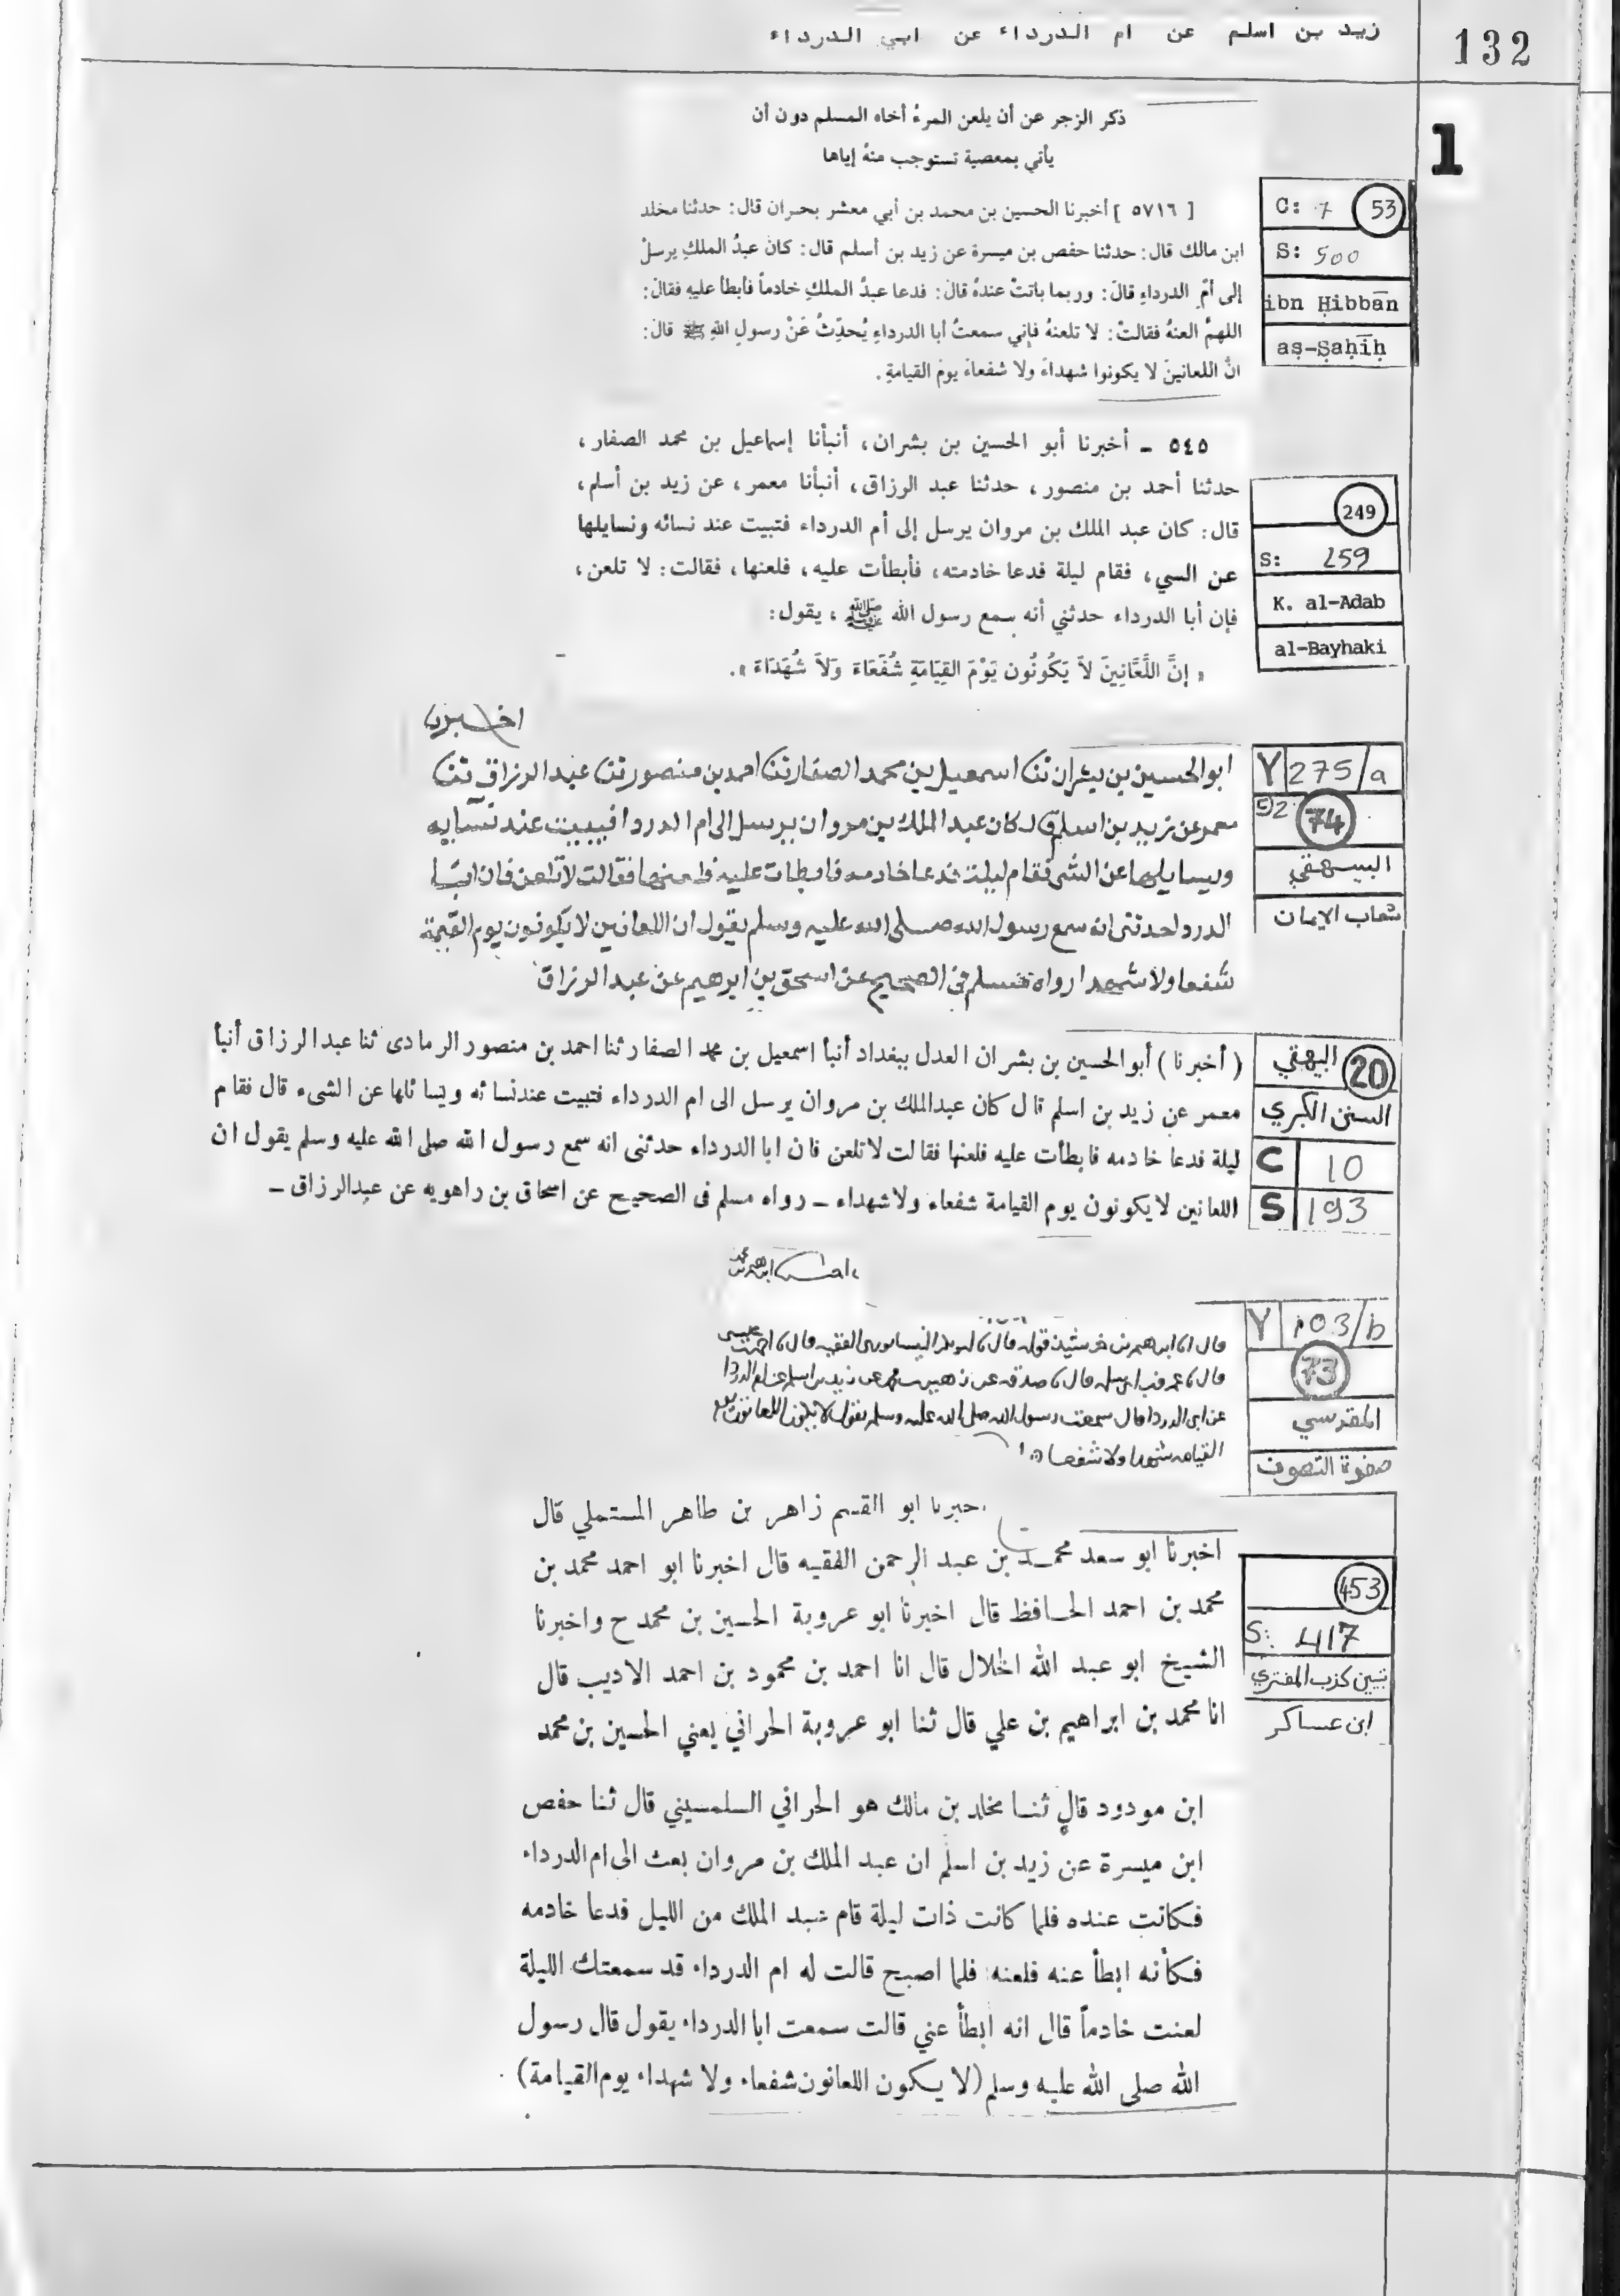 زيد بن اسلم عن ام الدرداء عن ابي الدرداء
132
1
ذكر الزجر عن أن يلعن المرءُ أخاه المسلم دون أن
يأتي بمعصية تستوجب منهُ إياها
C: 7 53
S: 500
ibn Ḥibbān
aṣ-Ṣaḥīḥ
[ ٥٧١٦ ] أخبرنا الحسين بن محمد بن أبي معشر بحران قال: حدثنا مخلد
ابن مالك قال: حدثنا حفص بن ميسرة عن زيد بن أسلم قال: كانَ عبدُ الملكِ يرسلُ
إلى أمِّ الدرداءِ قالَ: وربما باتتْ عندهُ قالَ: فدعا عبدُ الملكِ خادماً فأبطأ عليهِ فقالَ:
اللهمَّ العنهُ فقالتْ: لا تلعنهُ فإني سمعتُ أبا الدرداءِ يُحدِّثُ عَنْ رسولِ اللهِ ﷺ قالَ:
انَّ اللعانينَ لا يكونوا شهداءَ ولا شفعاءَ يومَ القيامةِ.
249
S: 259
K. al-Adab
al-Bayhaki
٥٤٥ ـ أخبرنا أبو الحسين بن بشران، أنبأنا إسماعيل بن محمد الصفار،
حدثنا أحمد بن منصور، حدثنا عبد الرزاق، أنبأنا معمر، عن زيد بن أسلم،
قال: كان عبد الملك بن مروان يرسل إلى أم الدرداء فتبيت عند نسائه ونسايلها
عن السي، فقام ليلة فدعا خادمته، فأبطأت عليه، فلعنها، فقالت: لا تلعن،
فإن أبا الدرداء حدثني أنه سمع رسول الله ﷺ، يقول:
« إنَّ اللَّعَّانِينَ لاَ يَكُونُون يَوْمَ القِيَامَةِ شُفَعَاءَ وَلاَ شُهَدَاءَ ».
Y 275/a
52 74
البيهقي
شعاب الايمان
اخبرنا
ابو الحسين بن بشران ثنا اسمعيل بن محمد الصفار ثنا احمد بن منصور ثنا عبد الرزاق ثنا
معمر عن زيد بن اسلم قال كان عبد الملك بن مروان يرسل الى ام الدردا فيبيت عند نسايه
ويسايلها عن الشى فقام ليلة فدعا خادمه فابطات عليه فلعنها فقالت لا تلعن فان ابا
الدردا حدثنى انه سمع رسول الله صلى الله عليه وسلم يقول ان اللعانين لا يكونون يوم القيمة
شفعا ولا شهدا رواه مسلم في الصحيح عن اسحق بن ابرهيم عن عبد الرزاق
البيهقي 20
السنن الكبري
C 10
S 193
( أخبرنا ) أبو الحسين بن بشران العدل ببغداد أنبأ اسمعيل بن محمد الصفار ثنا احمد بن منصور الرمادى ثنا عبد الرزاق أنبأ
معمر عن زيد بن اسلم قال كان عبدالملك بن مروان يرسل الى ام الدرداء فتبيت عند نسائه ويسائلها عن الشىء قال فقام
ليلة فدعا خادمه فابطأت عليه فلعنها فقالت لا تلعن فان ابا الدرداء حدثنى انه سمع رسول الله صلى الله عليه وسلم يقول ان
اللعانين لا يكونون يوم القيامة شفعاء ولا شهداء ـ رواه مسلم فى الصحيح عن اسحاق بن راهويه عن عبدالرزاق ـ
Y 103/b
73
المقدسي
صفوة التصوف
قال ابراهيم بن قوله قال النيسابورى الفقيه قال
قال قال صدقه عن زهير محمد عن زيد بن اسلم عن ام الدردا
عن ابى الدردا قال سمعت رسول الله صلى الله عليه وسلم يقول لا يكون اللعانون يوم
القيامه شهدا ولا شفعا
453
S: 417
تبيين كذب المفتري
ابن عساكر
اخبرنا ابو القسم زاهر بن طاهر المستملي قال
اخبرنا ابو سعد محمد بن عبد الرحمن الفقيه قال اخبرنا ابو احمد محمد بن
محمد بن احمد الحافظ قال اخبرنا ابو عروبة الحسين بن محمد ح واخبرنا
الشيخ ابو عبد الله الخلال قال انا احمد بن محمود بن احمد الاديب قال
انا محمد بن ابراهيم بن علي قال ثنا ابو عروبة الحراني يعني الحسين بن محمد
ابن مودود قال ثنا مخلد بن مالك هو الحراني السلمسيني قال ثنا حفص
ابن ميسرة عن زيد بن اسلم ان عبد الملك بن مروان بعث الى ام الدرداء
فكانت عنده فلما كانت ذات ليلة قام عبد الملك من الليل فدعا خادمه
فكأنه ابطأ عنه فلعنه فلما اصبح قالت له ام الدرداء قد سمعتك الليلة
لعنت خادماً قال انه ابطأ عني قالت سمعت ابا الدرداء يقول قال رسول
الله صلى الله عليه وسلم (لا يكون اللعانون شفعاء ولا شهداء يوم القيامة)